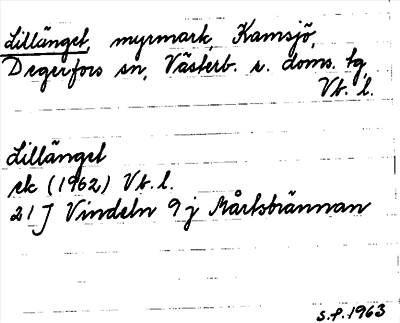 Lillänget, myrmark, Kamsjö,
Degerfors sn, Västerb. s. doms. tg,
Vb. l.
Lillänget
ek (1962) Vb. l.
21 J Vindeln 9 j Mårtsbrännan
S.P. 1963